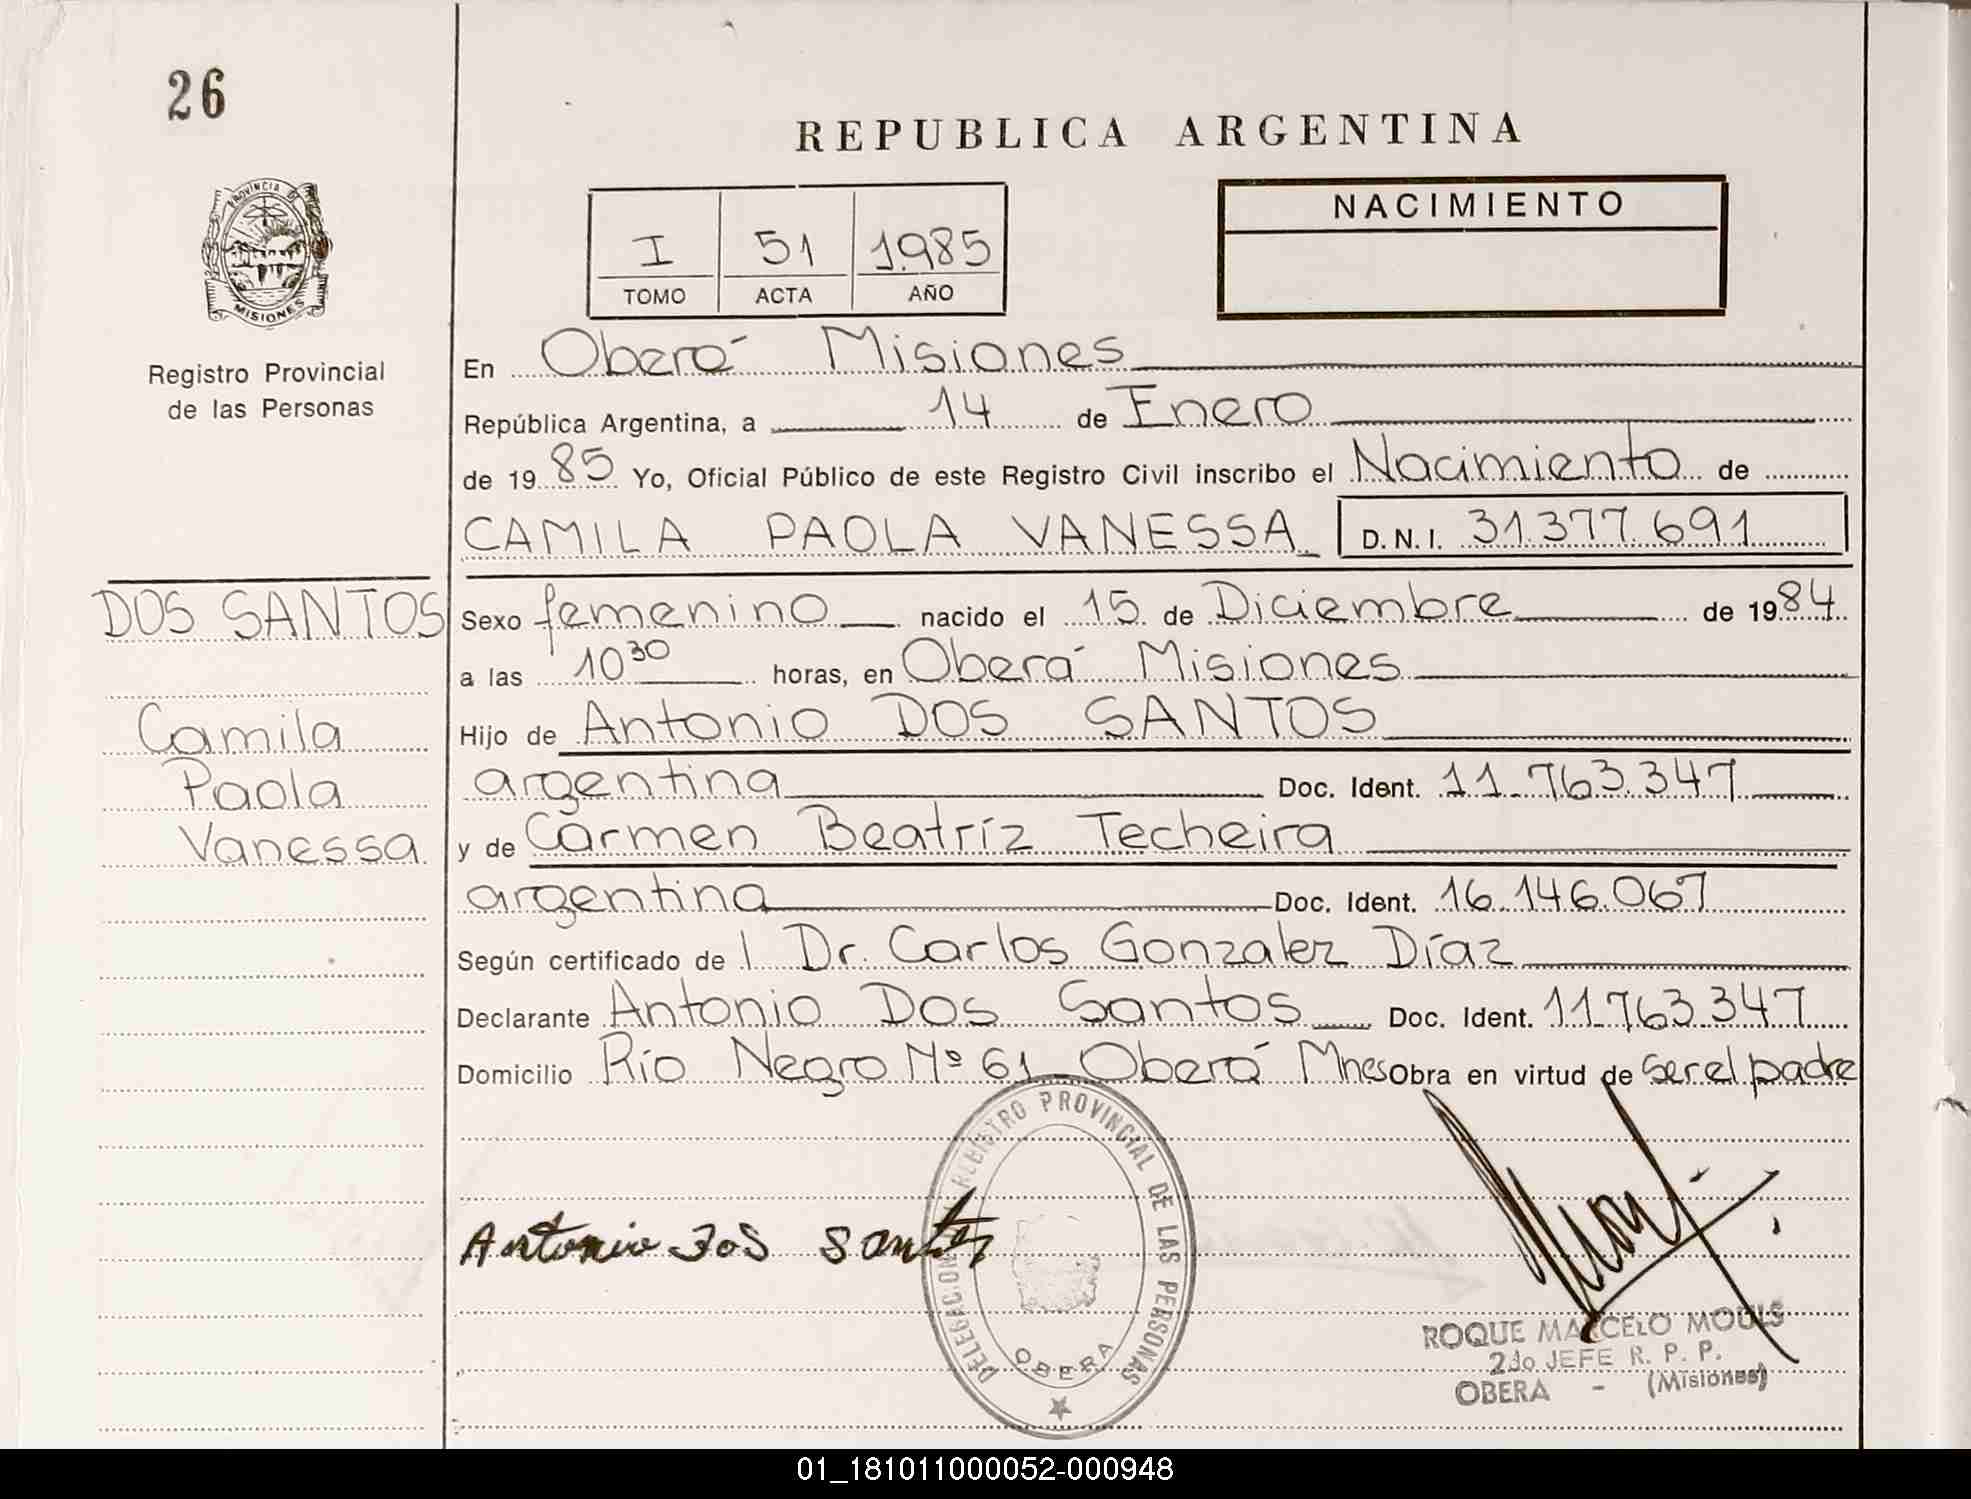 26
REPUBLICA ARGENTINA
PROVINCIA DE
MISIONES
I 51 1985
TOMO ACTA AÑO
NACIMIENTO
Registro Provincial
de las Personas
En Oberá Misiones
República Argentina, a 14 de Enero
de 1985 Yo, Oficial Público de este Registro Civil inscribo el Nacimiento de
CAMILA PAOLA VANESSA D.N.I. 31.377.691
DOS SANTOS
Camila
Paola
Vanessa
Sexo femenino nacido el 15 de Diciembre de 1984
a las 10 30 horas, en Oberá Misiones
Hijo de Antonio DOS SANTOS
argentina Doc. Ident. 11.763.347
y de Carmen Beatríz Techeira
argentina Doc. Ident. 16.146.067
Según certificado de l Dr. Carlos Gonzalez Díaz
Declarante Antonio Dos Santos Doc. Ident. 11.763.347
Domicilio Río Negro Nº 61 Oberá Mnes Obra en virtud de ser el padre
DELEGACION REGISTRO PROVINCIAL DE LAS PERSONAS
OBERA
Antonio Dos Santos
ROQUE MARCELO MOULS
2do JEFE R. P. P.
OBERA - (Misiones)
01_181011000052-000948